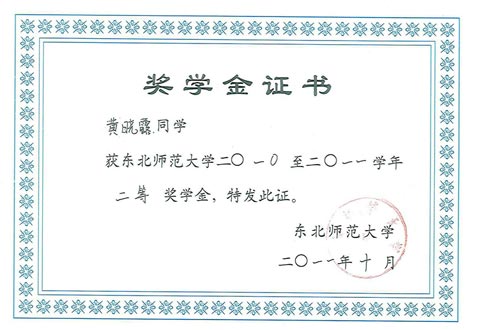 奖学金证书
黄晓露同学
获东北师范大学二〇一0至二〇一一学年
二等奖学金，特发此证。
东北师范大学
二〇一一年十月